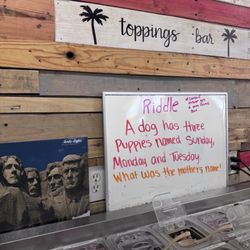 toppings bar
Riddle
A dog has three
Puppies named Sunday,
Monday and Tuesday.
What was the mother's name!